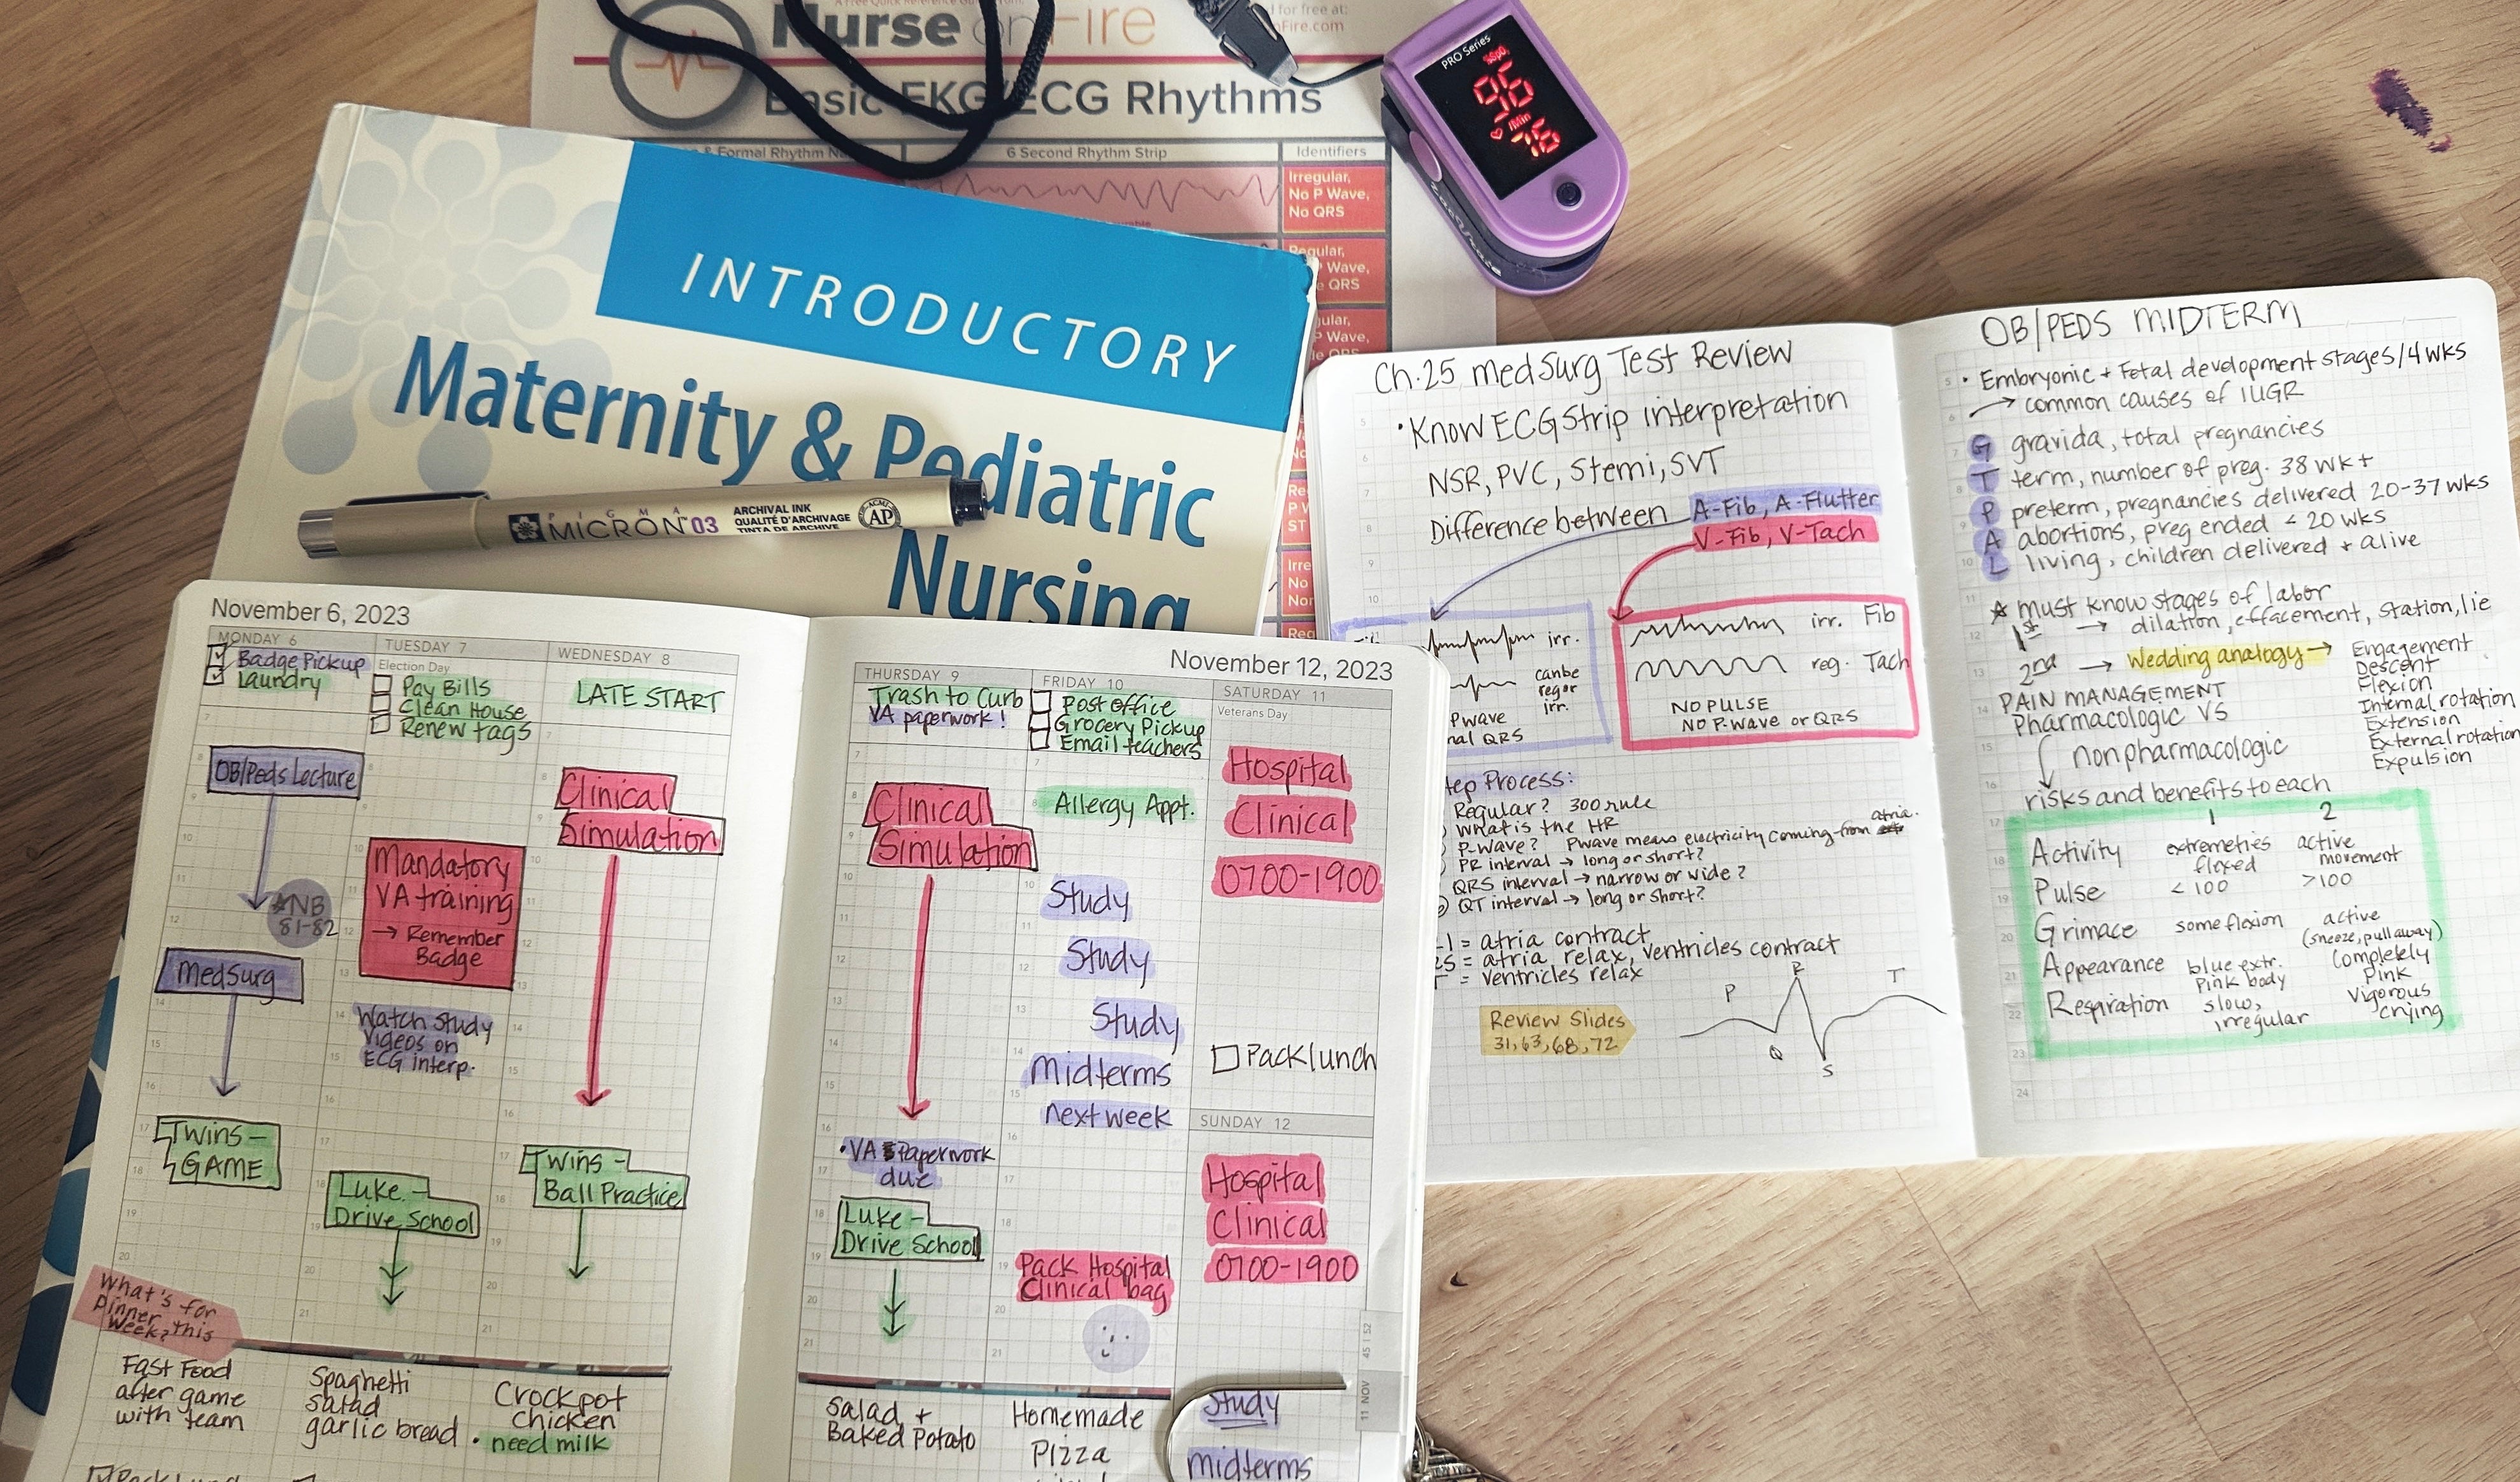 Nurse on Fire
for free at:
Fire.com
Basic EKG/ECG Rhythms
& Formal Rhythm
6 Second Rhythm Strip
Identifiers
Irregular,
No P Wave,
No QRS
Regular,
P Wave,
QRS
PRO Series
%SpO₂
96
/Min
76
INTRODUCTORY
Maternity & Pediatric
Nursing
PIGMA
MICRON™ 03
ARCHIVAL INK
QUALITÉ D'ARCHIVAGE
TINTA DE ARCHIVE
ACMI
AP
November 6, 2023
MONDAY 6
Badge Pickup
Laundry
OB/Peds Lecture
NB
81-82
MedSurg
Twins -
GAME
TUESDAY 7
Election Day
Pay Bills
Clean House
Renew tags
Mandatory
VA training
→ Remember
Badge
Watch Study
Videos on
ECG interp.
Luke -
Drive School
WEDNESDAY 8
LATE START
Clinical
Simulation
Twins -
Ball Practice
What's for
Dinner this
Week?
Fast Food
after game
with team
Spaghetti
salad
garlic bread
Crockpot
chicken
• need milk
November 12, 2023
THURSDAY 9
Trash to Curb
VA paperwork!
Clinical
Simulation
• VA Paperwork
due
Luke -
Drive School
FRIDAY 10
Post office
Grocery Pickup
Email teachers
Allergy Appt.
Study
Study
Study
Midterms
next week
Pack Hospital
Clinical bag
SATURDAY 11
Veterans Day
Hospital
Clinical
0700-1900
Pack lunch
SUNDAY 12
Hospital
Clinical
0700-1900
45 | 52
11 NOV
Salad +
Baked Potato
Homemade
Pizza
Study
midterms
Ch.25 medSurg Test Review
• Know ECG Strip interpretation
NSR, PVC, Stemi, SVT
Difference between A-Fib, A-Flutter
V-Fib, V-Tach
irr.
can be
reg or
irr.
P wave
QRS
irr. Fib
reg. Tach
NO PULSE
NO P-WAVE or QRS
Process:
Regular? 300 rule
What is the HR
P-wave? Pwave means electricity coming from atria.
PR interval → long or short?
QRS interval → narrow or wide?
QT interval → long or short?
= atria contract
= atria relax, ventricles contract
= ventricles relax
Review Slides
31, 63, 68, 72
P
R
T
Q
S
OB/PEDS MIDTERM
• Embryonic + Fetal development stages/4 wks
→ common causes of IUGR
G gravida, total pregnancies
T term, number of preg. 38 wk+
P preterm, pregnancies delivered 20-37 wks
A abortions, preg ended < 20 wks
L living, children delivered + alive
★ must know stages of labor
1st → dilation, effacement, station, lie
2nd → Wedding analogy →
Engagement
Descent
Flexion
Internal rotation
Extension
External rotation
Expulsion
PAIN MANAGEMENT
Pharmacologic VS
nonpharmacologic
risks and benefits to each
1 2
Activity extremeties flexed active movement
Pulse < 100 >100
Grimace some flexion active (sneeze, pull away)
Appearance blue extr. pink body completely pink
Respiration slow, irregular vigorous crying